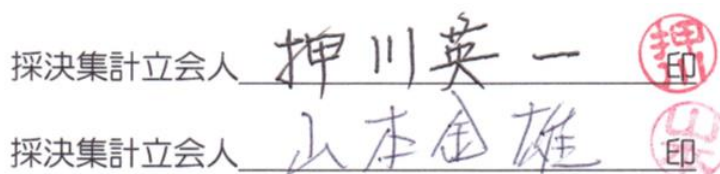 採決集計立会人 押川英一 印
採決集計立会人 山本金雄 印